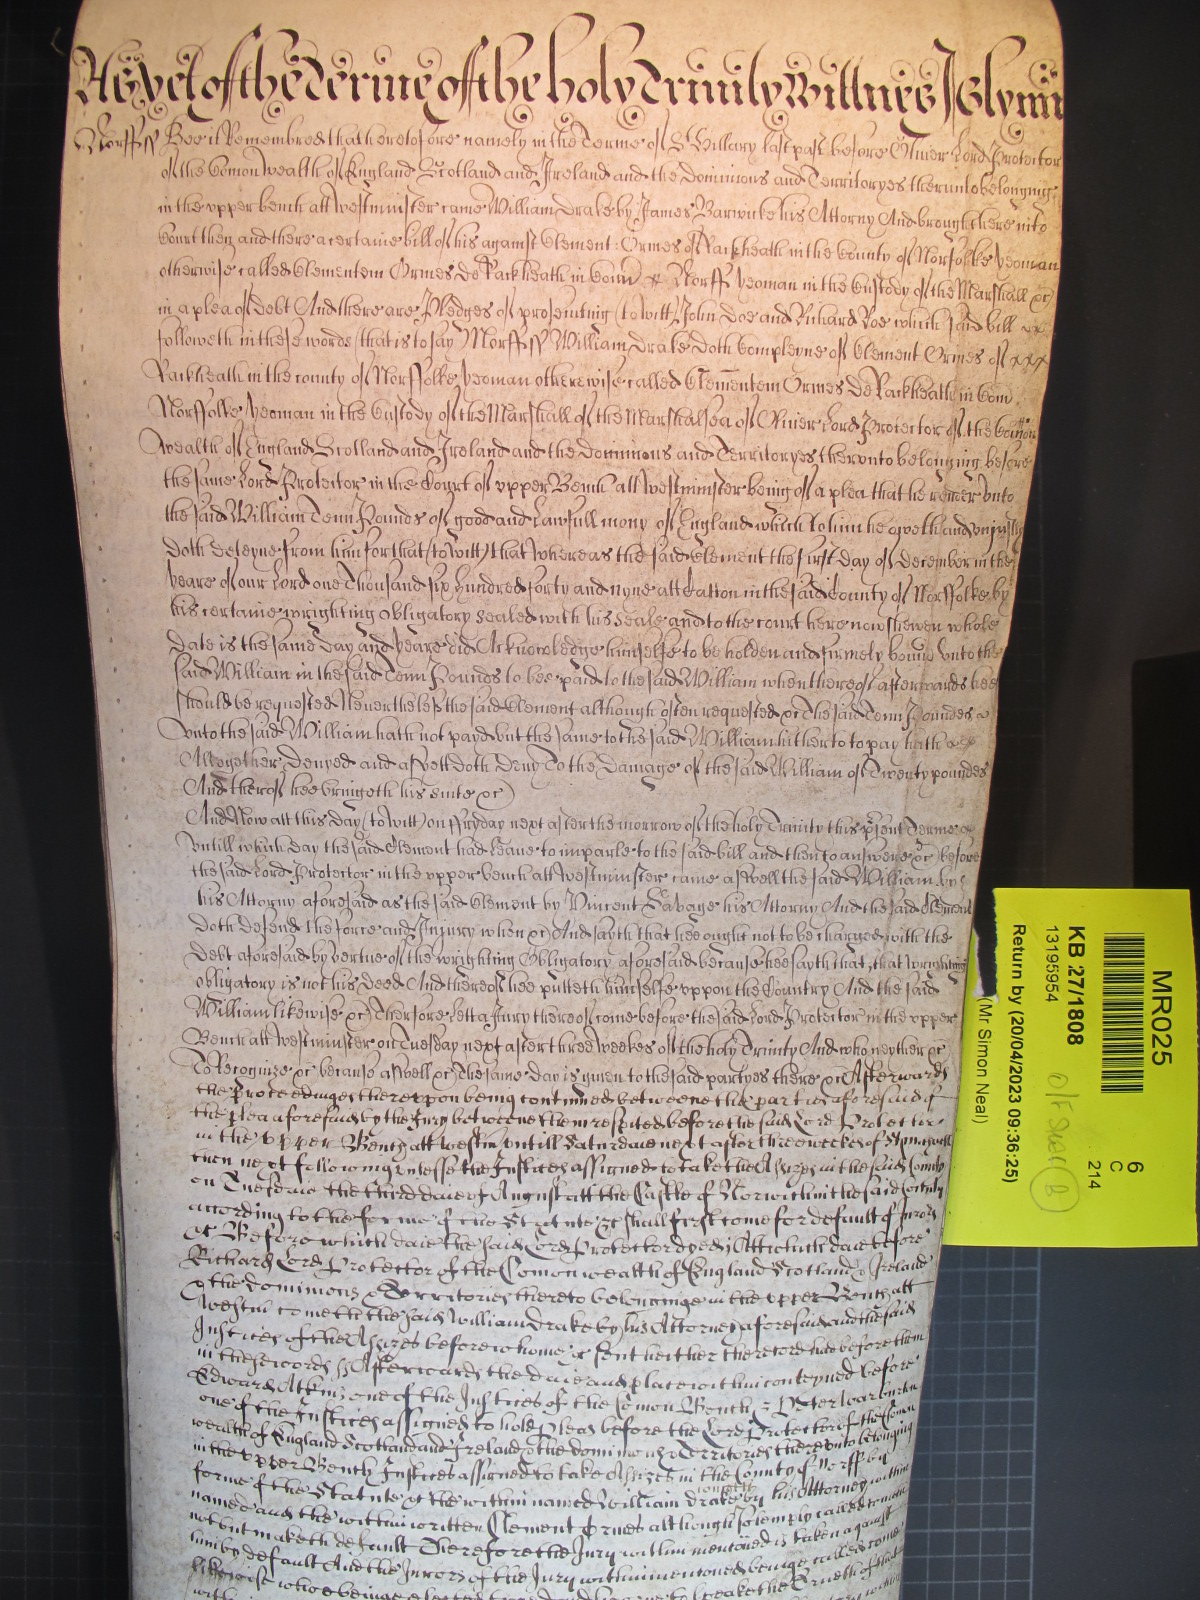 As yet of the Terme of the holy Trinity Wittnes J Glynn
Norff ss Bee it Remembred that heretofore namely in the Terme of St Hillary last past before Oliver Lord Protector
of the Comon Wealth of England Scotland and Ireland and the Dominions and Territoryes therunto belonging
in the upper bench att Westminster came William Drake by James Barwicke his Attorny And brought here into
Court then and there a certaine bill of his against Clement Ormes of Rackheath in the County of Norfolke yeoman
otherwise called Clementem Ormes De Rackheath in Com & Norff yeoman in the Custody of the Marshall &c
in a plea of Debt And there are Pledges of prosecuting (to witt) John Doe and Richard Roe which said bill
followeth in these words that is to say Norff ss William Drake doth Compleyne of Clement Ormes of xxx
Rackheath in the county of Norffolke Yeoman otherewise called Clementem Ormes De Rackheath in Com
Norffolke yeoman in the Custody of the Marshall of the Marshalsea of Oliver Lord Protector of the Comon
Wealth of England Scotland and Ireland and the Dominions and Territoryes therunto belonging before
the same Lord Protector in the Court of upper Bench att Westminster being of a plea that he render unto
the said William Tenn Pounds of good and Lawfull mony of England which to him he oweth and unjustly
Doth deteyne from him for that (to witt) that Whereas the said Clement the first day of December in the
yeare of our Lord one Thousand six hundred forty and nyne att Catton in the said County of Norffolke by
his certaine wrighting obligatory sealed with his seale and to the court here now shewen whose
Date is the same Day and yeare did Acknowledge himselfe to be holden and firmely bound unto the
said William in the said Tenn Pounds to bee paid to the said William when thereof afterwards hee
should be requested Neverthelesse the said Clement although often requested &c The said Tenn Poundes
unto the said William hath not payd but the same to the said William hitherto to pay hath
Altogether Denyed and as yett doth deny To the Damage of the said William of Twenty poundes
And therof hee bringeth his suite &c)
And Now att this day (to witt) on ffryday next after the morrow of the holy Trinity this present Terme
Untill which day the said Clement had Leave to imparle to the said bill and then to answere &c) before
the said Lord Protector in the upper bench att Westminster came aswell the said William by
his Attorny aforesaid as the said Clement by Vincent Savage his Attorny And the said Clement
Doth defend the force and Injury when &c) And sayth that hee ought not to be charged with the
Debt aforesaid by vertue of the wrighting Obligatory aforesaid because hee sayth that, that wrighting
obligatory is not his Deed And thereof hee putteth himselfe uppon the Country And the said
William likewise &c) Therfore Lett a Jury thereof come before the said Lord Protector in the upper
Bench att Westminster on Tuesday next after three weekes of the holy Trinity And who neyther &c
To Recognize &c because aswell &c The same day is given to the said partyes there &c Afterwards
the proceedinges thereupon being continued betweene the parties aforesaid of
the plea aforesaid by the Jury betweene them respited before the said Lord Protector
in the upper Bench att Westm untill Saturdaie next after three weekes of St Michaell
then next following unlesse the Justices assigned to take the Assizes in the said County
on Tuesdaie the third daie of August att the Castle of Norwich in the said County
according to the forme of the Statute &c shall first come for default of Jurors
&c Before which daie the said Lord Protector dyed; Att which daie before
Richard Lord Protector of the Comonwealth of England Scotland & Ireland
& the dominions & Territories thereto belonginge in the upper Bench att
Westm cometh the said William Drake by his Attorney aforesaid and the said
Justices of the Assizes before whome &c sent heither there record had before them
in these words ss Afterwards the daie and place within conteyned before
Edward Atkins one of the Justices of the Comon Bench & Peter Warburton
one of the Justices assigned to hold Pleas before the Lord Protector of the Comon
wealth of England Scotland and Ireland & the dominions & Territories thereunto belonging
in the upper Bench Justices assigned to take Assizes in the County of Norff by
forme of the Statute &c the within named William Drake cometh by his Attorney within
named and the within written Clement Ormes although solemply called cometh
not but maketh default Therefore the Jury within mencioned is taken against
him by default And the Jurors of the Jury within mencioned beinge called come
likewise who beinge
MR025
6
C
214
KB 27/1808
13195954
Return by (20/04/2023 09:36:25)
(Mr Simon Neal)